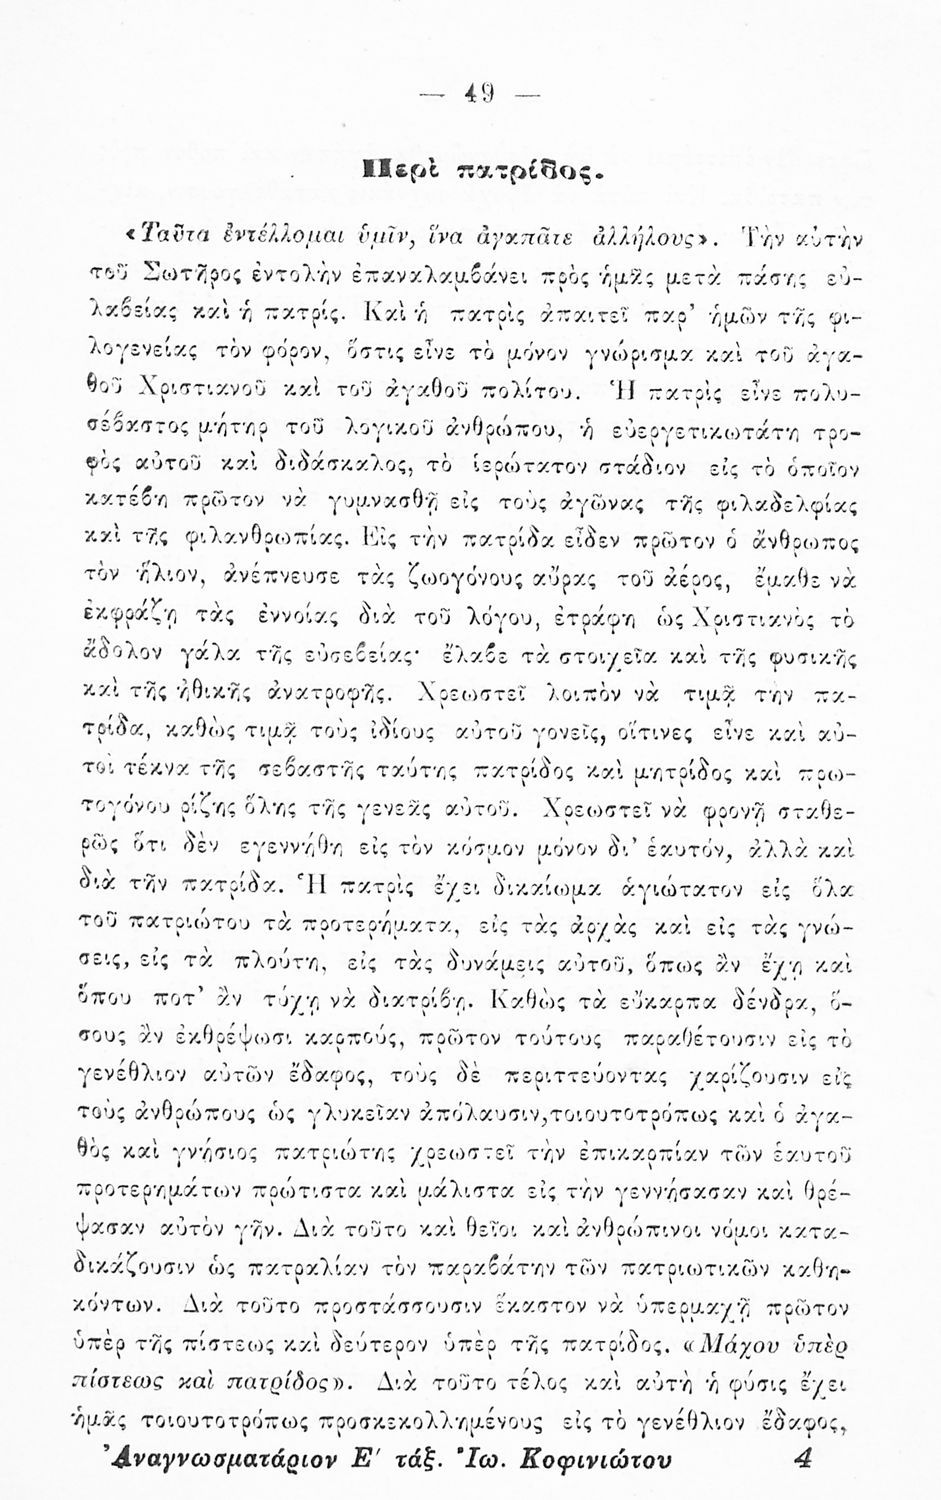 — 49 —
Περὶ πατρίδος.
«Ταῦτα ἐντέλλομαι ὑμῖν, ἵνα ἀγαπᾶτε ἀλλήλους». Τὴν αὐτὴν
τοῦ Σωτῆρος ἐντολὴν ἐπαναλαμβάνει πρὸς ἡμᾶς μετὰ πάσης εὐ-
λαβείας καὶ ἡ πατρίς. Καὶ ἡ πατρὶς ἀπαιτεῖ παρ’ ἡμῶν τῆς φι-
λογενείας τὸν φόρον, ὅστις εἶνε τὸ μόνον γνώρισμα καὶ τοῦ ἀγα-
θοῦ Χριστιανοῦ καὶ τοῦ ἀγαθοῦ πολίτου. Ἡ πατρὶς εἶνε πολυ-
σέβαστος μήτηρ τοῦ λογικοῦ ἀνθρώπου, ἡ εὐεργετικωτάτη τρο-
φὸς αὐτοῦ καὶ διδάσκαλος, τὸ ἱερώτατον στάδιον εἰς τὸ ὁποῖον
κατέβη πρῶτον νὰ γυμνασθῇ εἰς τοὺς ἀγῶνας τῆς φιλαδελφίας
καὶ τῆς φιλανθρωπίας. Εἰς τὴν πατρίδα εἶδεν πρῶτον ὁ ἄνθρωπος
τὸν ἥλιον, ἀνέπνευσε τὰς ζωογόνους αὔρας τοῦ ἀέρος, ἔμαθε νὰ
ἐκφράζῃ τὰς ἐννοίας διὰ τοῦ λόγου, ἐτράφη ὡς Χριστιανὸς τὸ
ἄδολον γάλα τῆς εὐσεβείας· ἔλαβε τὰ στοιχεῖα καὶ τῆς φυσικῆς
καὶ τῆς ἠθικῆς ἀνατροφῆς. Χρεωστεῖ λοιπὸν νὰ τιμᾷ τὴν πα-
τρίδα, καθὼς τιμᾷ τοὺς ἰδίους αὐτοῦ γονεῖς, οἵτινες εἶνε καὶ αὐ-
τοὶ τέκνα τῆς σεβαστῆς ταύτης πατρίδος καὶ μητρίδος καὶ πρω-
τογόνου ρίζης ὅλης τῆς γενεᾶς αὐτοῦ. Χρεωστεῖ νὰ φρονῇ σταθε-
ρῶς ὅτι δὲν εγεννήθη εἰς τὸν κόσμον μόνον δι’ ἑαυτόν, ἀλλὰ καὶ
διὰ τῆν πατρίδα. Ἡ πατρὶς ἔχει δικαίωμα ἁγιώτατον εἰς ὅλα
τοῦ πατριώτου τὰ προτερήματα, εἰς τὰς ἀρχὰς καὶ εἰς τὰς γνώ-
σεις, εἰς τὰ πλούτη, εἰς τὰς δυνάμεις αὐτοῦ, ὅπως ἂν ἔχῃ καὶ
ὅπου ποτ’ ἂν τύχῃ νὰ διατρίβῃ. Καθὼς τὰ εὔκαρπα δένδρα, ὅ-
σους ἂν ἐκθρέψωσι καρπούς, πρῶτον τούτους παραθέτουσιν εἰς τὸ
γενέθλιον αὐτῶν ἔδαφος, τοὺς δὲ περιττεύοντας χαρίζουσιν εἰς
τοὺς ἀνθρώπους ὡς γλυκεῖαν ἀπόλαυσιν,τοιουτοτρόπως καὶ ὁ ἀγα-
θὸς καὶ γνήσιος πατριώτης χρεωστεῖ τὴν ἐπικαρπίαν τῶν ἑαυτοῦ
προτερημάτων πρώτιστα καὶ μάλιστα εἰς τὴν γεννήσασαν καὶ θρέ-
ψασαν αὐτὸν γῆν. Διὰ τοῦτο καὶ θεῖοι καὶ ἀνθρώπινοι νόμοι κατα-
δικάζουσιν ὡς πατραλίαν τὸν παραβάτην τῶν πατριωτικῶν καθη-
κόντων. Διὰ τοῦτο προστάσσουσιν ἕκαστον νὰ ὑπερμαχῇ πρῶτον
ὑπὲρ τῆς πίστεως καὶ δεύτερον ὑπὲρ τῆς πατρίδος. «Μάχου ὑπὲρ
πίστεως καὶ πατρίδος». Διὰ τοῦτο τέλος καὶ αὐτὴ ἡ φύσις ἔχει
ἡμᾶς τοιουτοτρόπως προσκεκολλημένους εἰς τὸ γενέθλιον ἔδαφος,
Ἀναγνωσματάριον Ε′ τάξ. Ἰω. Κοφινιώτου 4